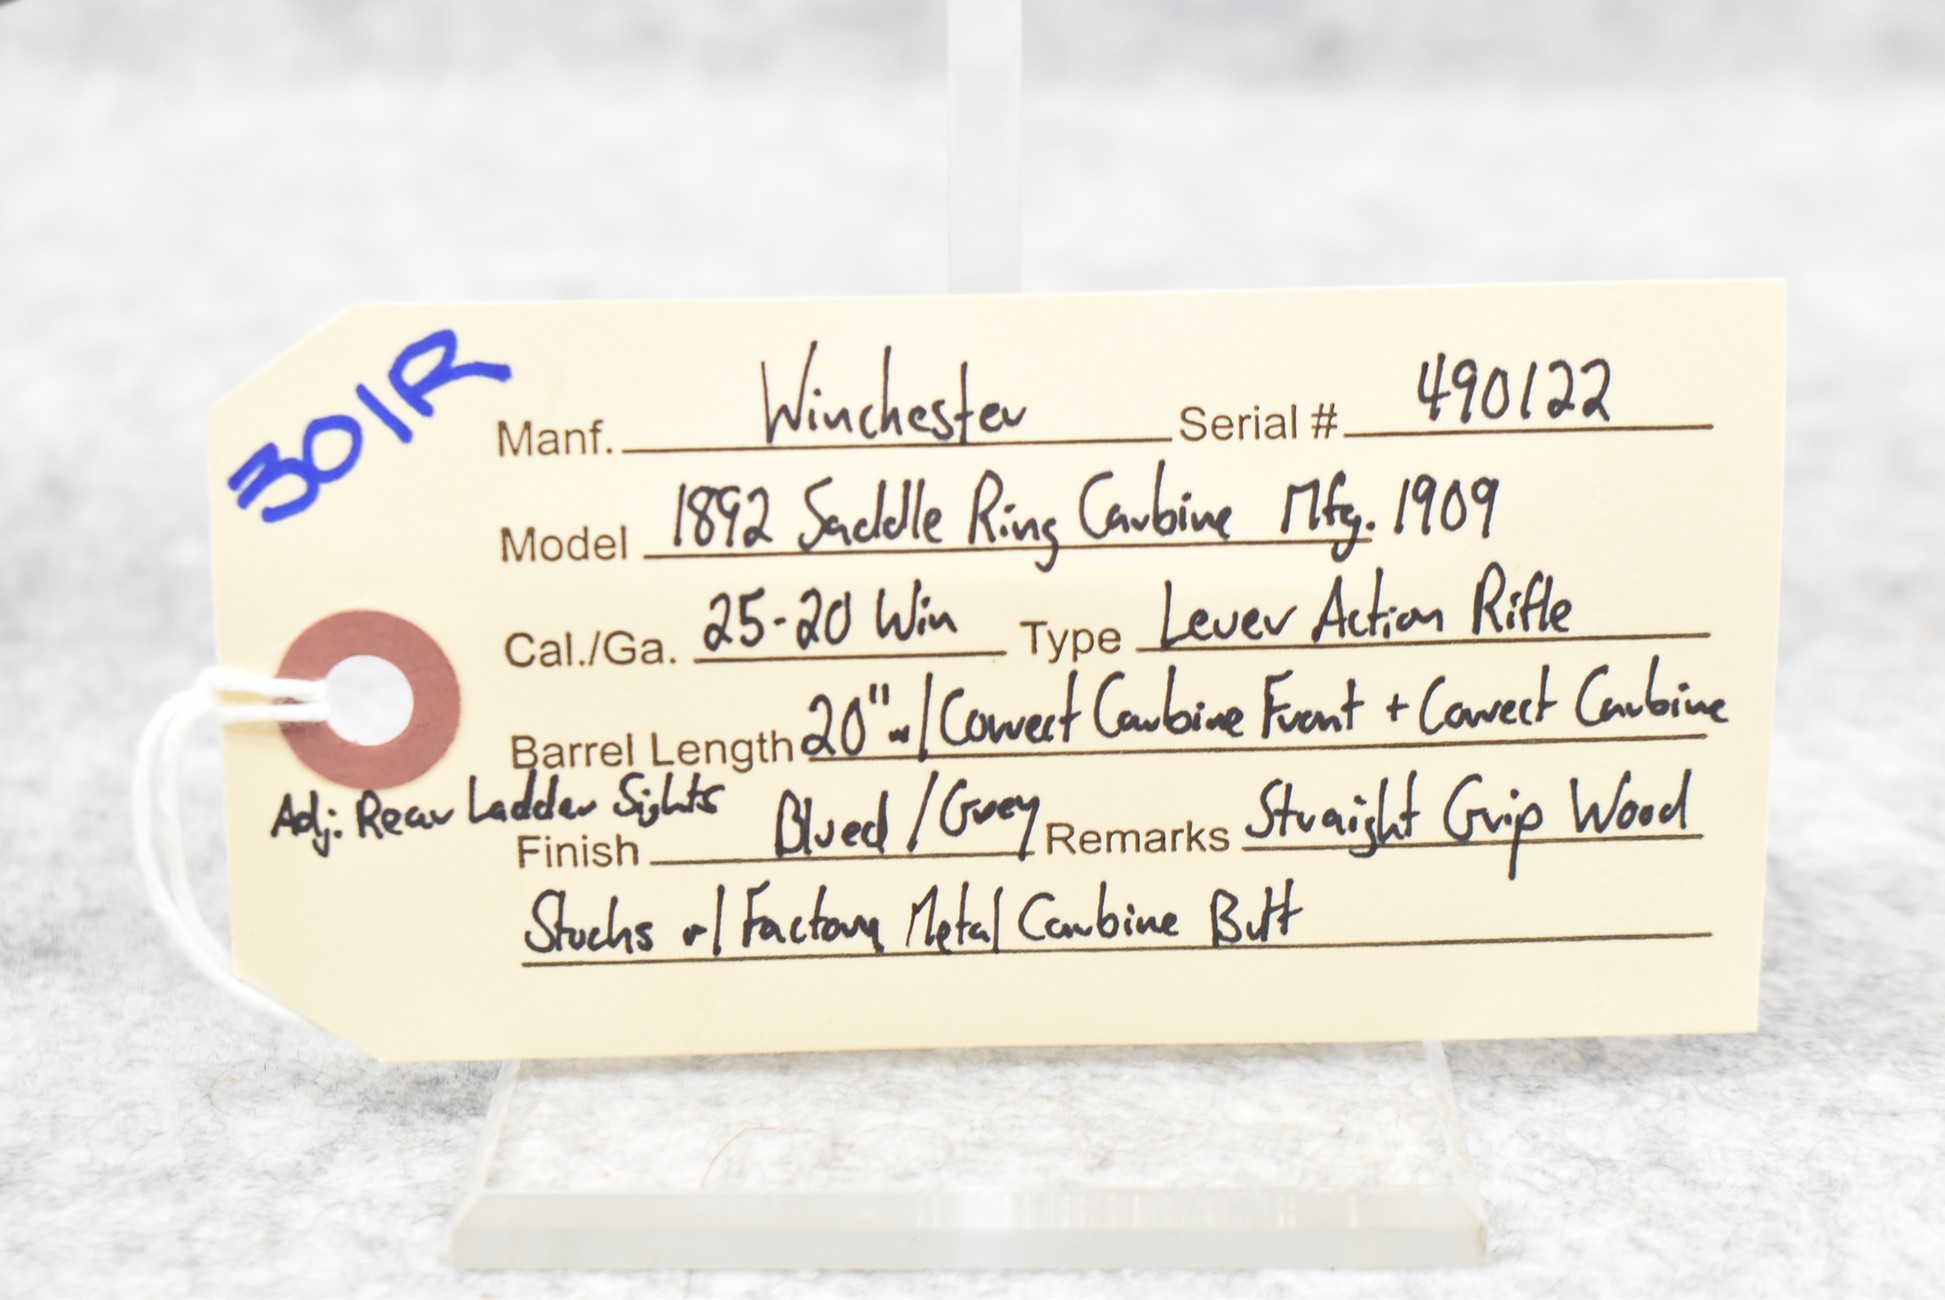 301R
Manf. Winchester Serial # 490122
Model 1892 Saddle Ring Carbine Mfg. 1909
Cal./Ga. 25-20 Win Type Lever Action Rifle
Barrel Length 20" w/ Correct Carbine Front + Correct Carbine
Adj. Rear Ladder Sights
Finish Blued / Grey Remarks Straight Grip Wood
Stocks w/ Factory Metal Carbine Butt